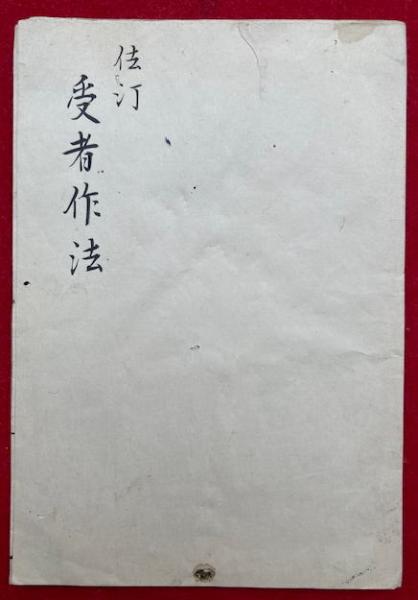 佉汀
受者作法